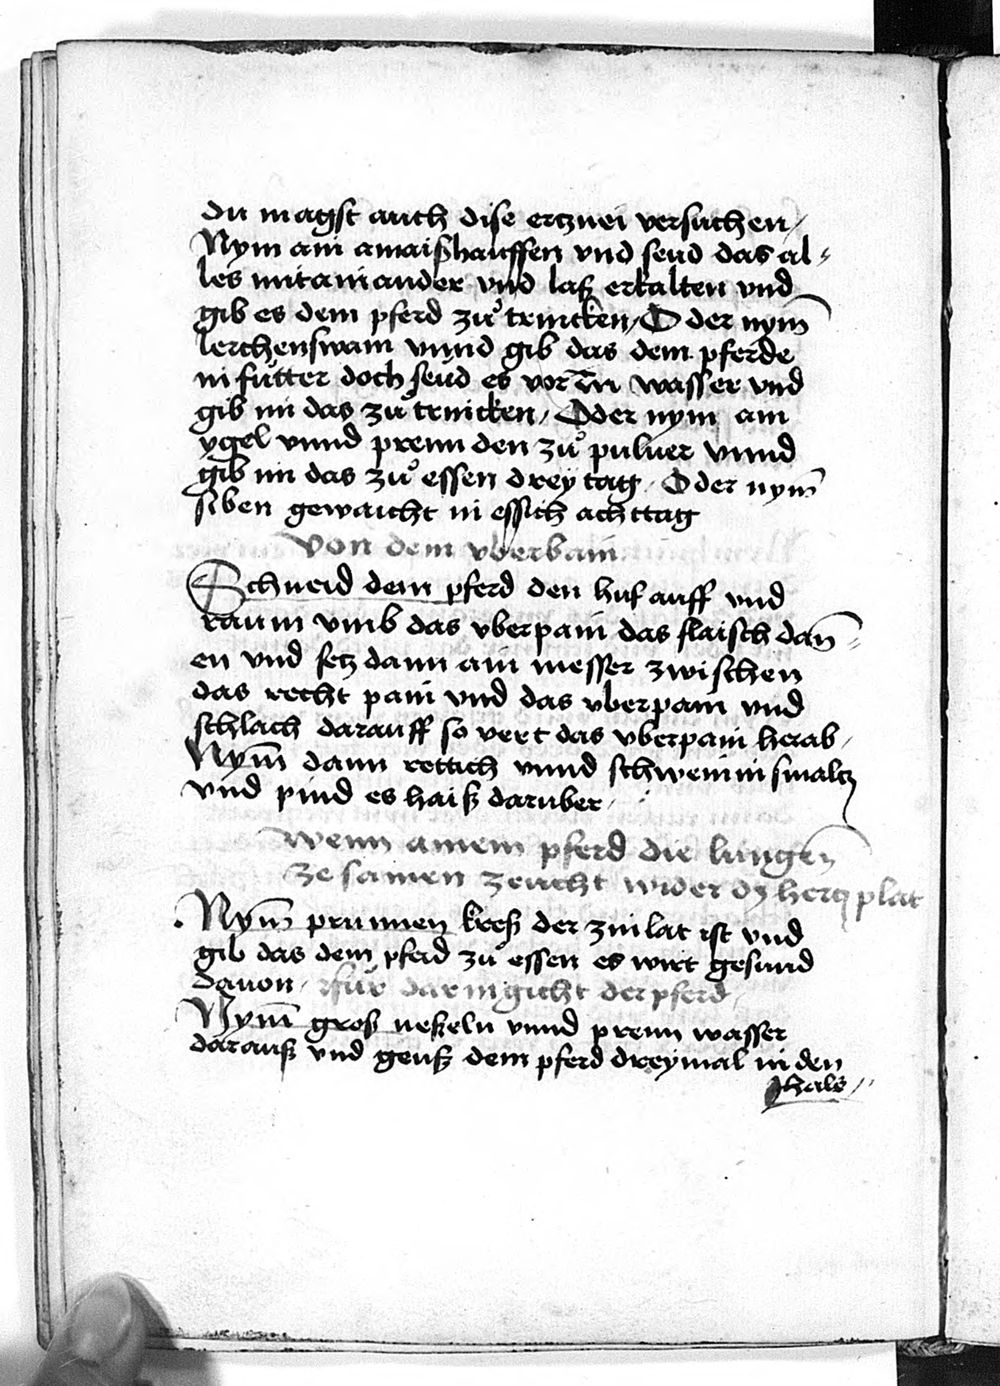 du magst auch dise ertznei versuchen /
Nym ain amaißhauffen vnd seud das al=
les mitainander vnd laß erkalten vnd
gib es dem pferd zuͦ trincken / Oder nym̄
lerchenswam vnnd gib das dem pferde
in fuͦtter doch seud es vor in wasser vnd
gib im das zuͦ trincken / Oder nym ain
ygel vnnd prenn den zuͦ puluer vnnd
gib im das zuͦ essen drey tag / Oder nym̄
siben gewaicht in essich acht tag
Von dem vberbain
Schneid dem pferd den huf auff vnd
raum vmb das vberpain das flaisch dan̄=
en vnd setz dann ain messer zwischen
das recht pain vnd das vberpain vnd
schlach darauff so vert das vberpain herab /
Nym̄ dann rettich vnnd schweinin smaltz
vnd pind es haiß daruber /
Wenn ainem pferd die lungen
ze samen zeucht wider dz hertz plat
Nym̄ prunnen kreß der zinlat ist vnd
gib das dem pferd zuͦ essen es wirt gesund
dauon / Fur darmgicht der pferd /
Nym̄ groß neßeln vnnd prenn wasser
darauß vnd geuß dem pferd dreymal in den
hals /